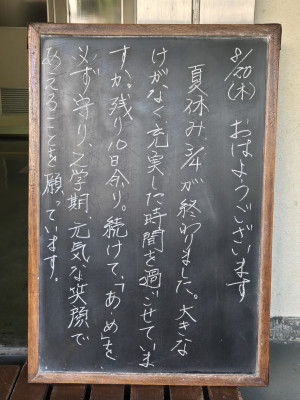 8/20(木) おはようございます
夏休み3/4が終わりました。大きな
けがなく充実した時間を過ごせていま
すか。残り10日余り。続けて、「あ・め」を
必ず守り、2学期、元気な笑顔で
あえることを願っています。